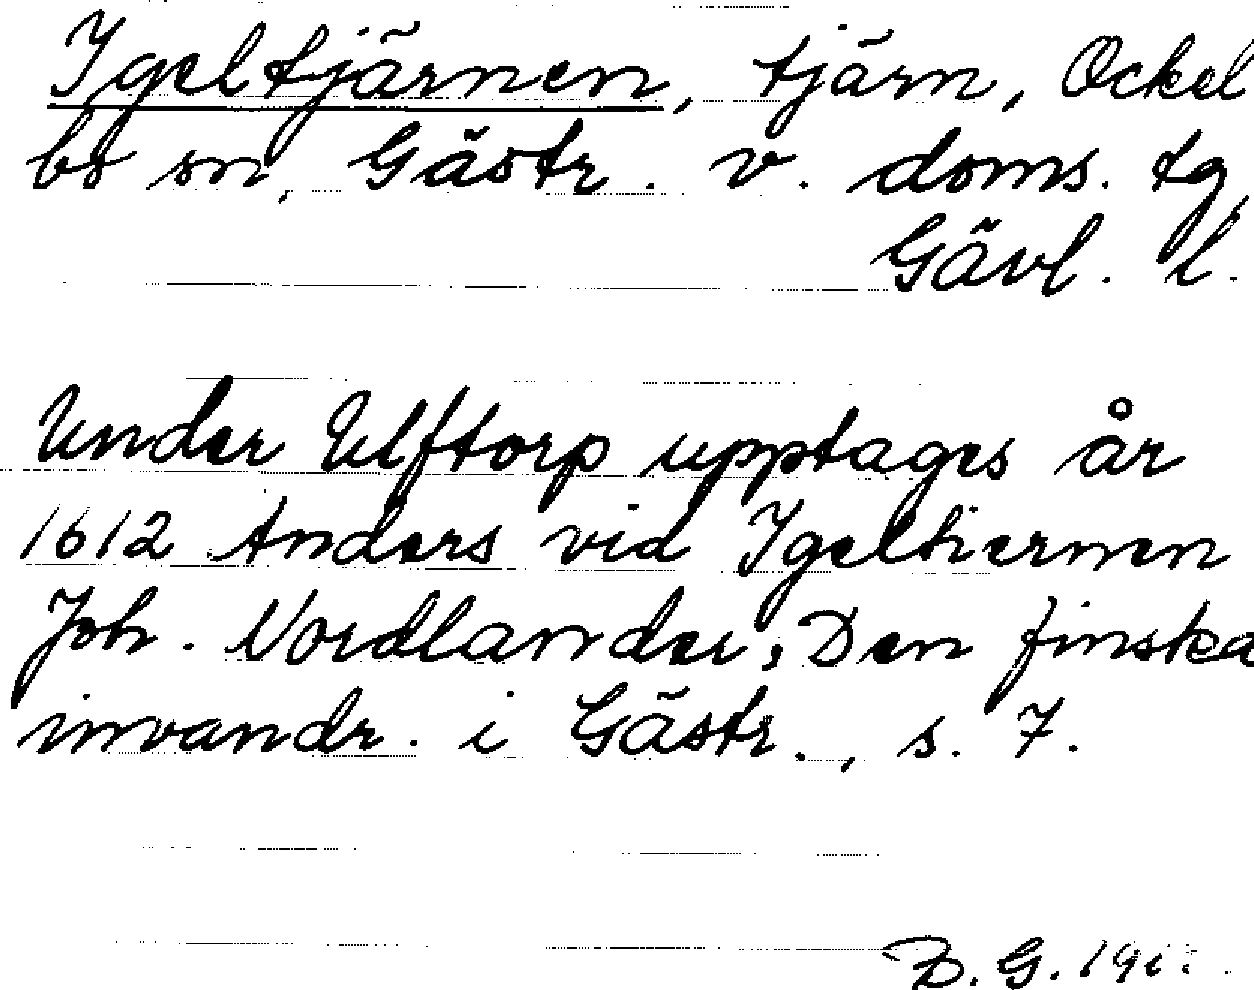 Igeltjärnen, tjärn, Ockel
bo sn, Gästr. v. doms. tg,
Gävl. l.
Under Ulftorp upptages år
1612 Anders vid Igeltiernen
Joh. Nordlander, Den finska
invandr. i Gästr., s. 7.
D. G.